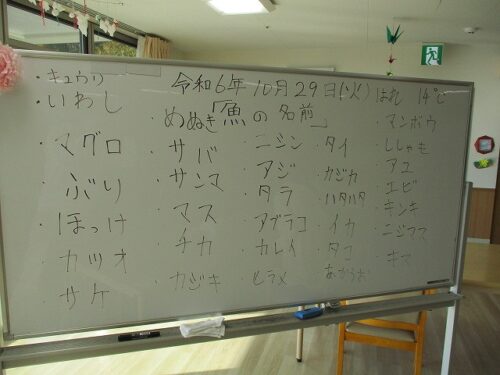 令和6年10月29日(火) はれ 14℃
めぬき「魚の名前」
・キュウリ
・いわし
・マグロ
・ぶり
・ほっけ
・カツオ
・サケ
・サバ
・サンマ
・マス
・チカ
・カジキ
・ニシン
・アジ
・タラ
・アブラコ
・カレイ
・ヒラメ
・タイ
・カジカ
・ハタハタ
・イカ
・タコ
・マンボウ
・ししゃも
・アユ
・エビ
・キンキ
・ニジマス